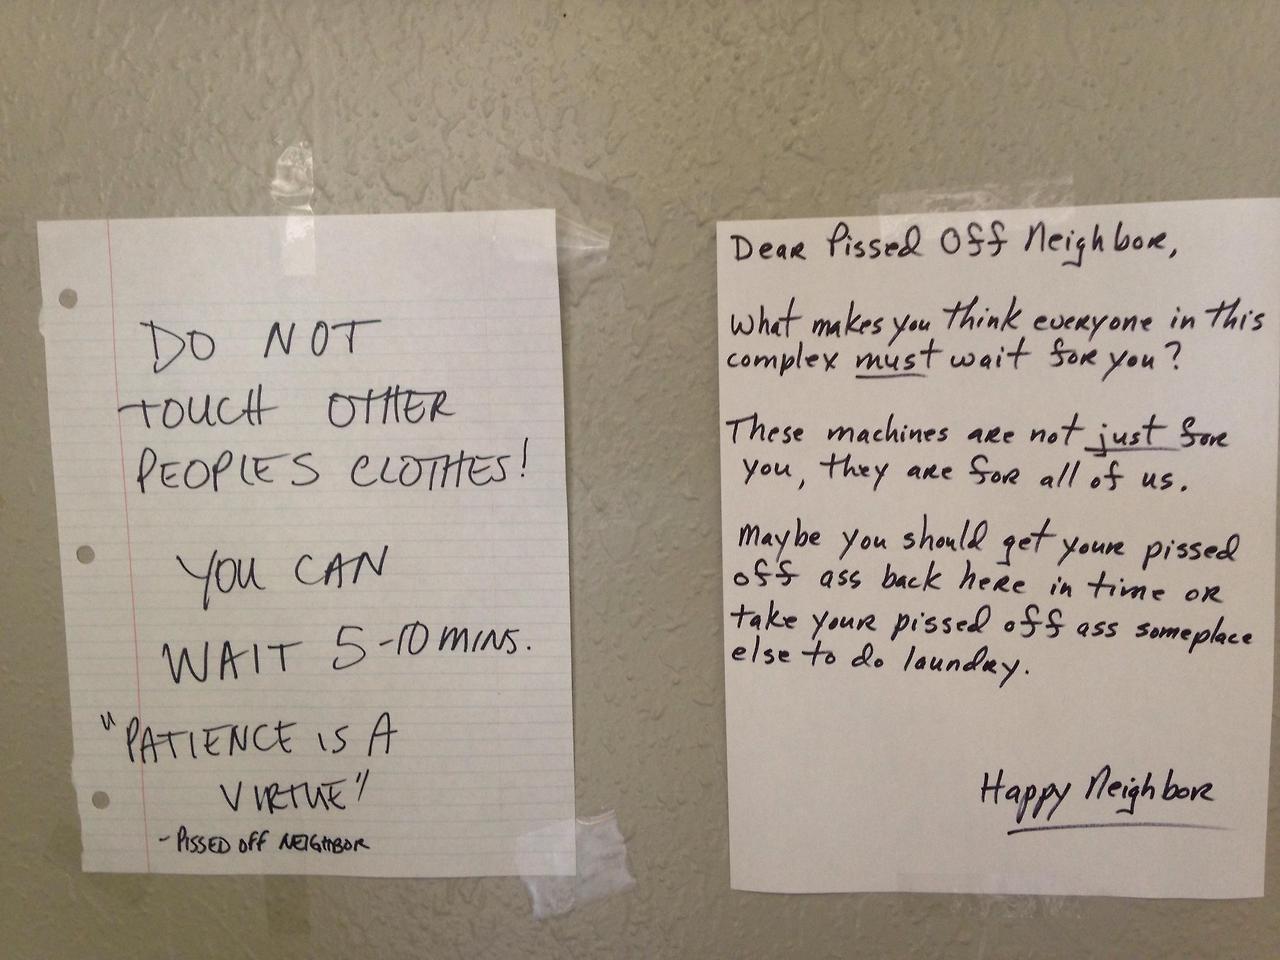 DO NOT
TOUCH OTHER
PEOPLES CLOTHES!
YOU CAN
WAIT 5-10 MINS.
"PATIENCE IS A
VIRTUE"
- PISSED OFF NEIGHBOR
Dear Pissed Off Neighbor,
What makes you think everyone in this
complex must wait for you?
These machines are not just for
you, they are for all of us.
Maybe you should get your pissed
off ass back here in time or
take your pissed off ass someplace
else to do laundry.
Happy Neighbor